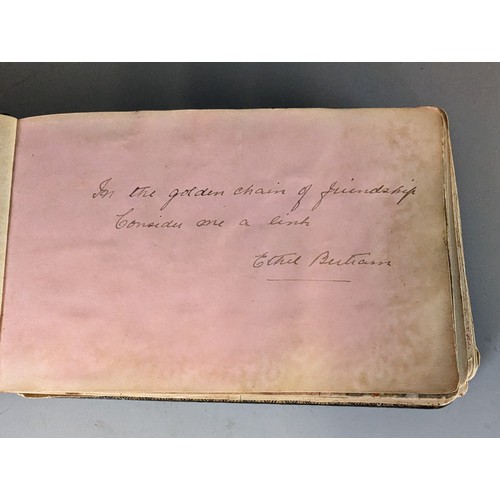 In the golden chain of friendship
Consider me a link
Ethel Bertram